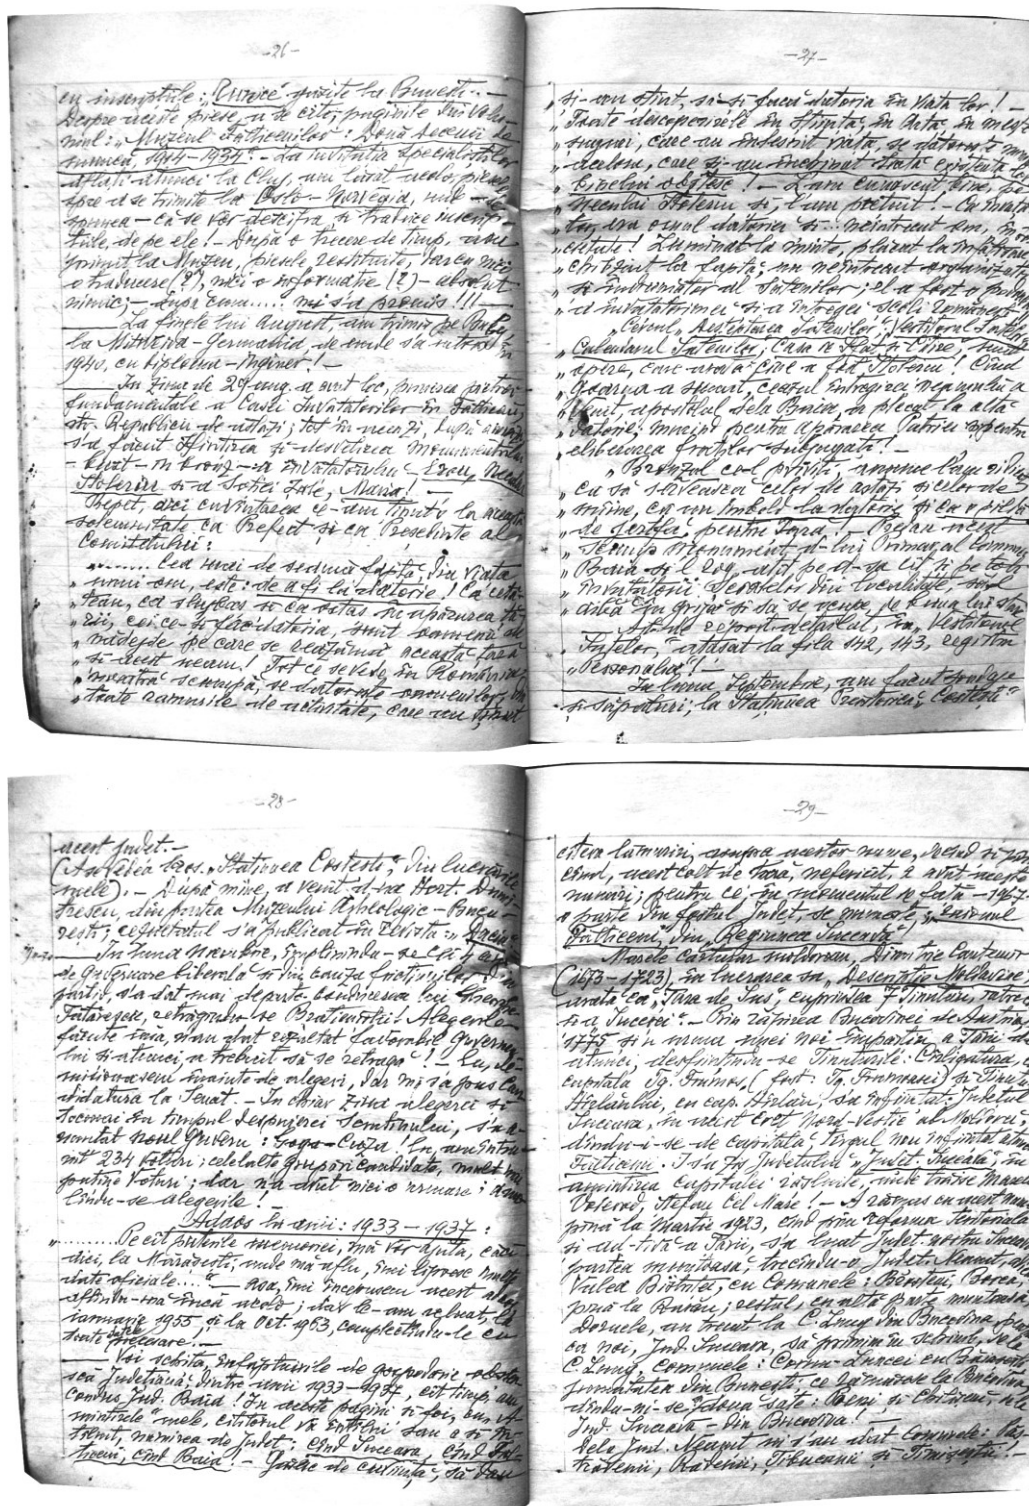 -26-
cu inscripțiile: "Runice" găsite la Bunești. -
Despre aceste piese, a se citi, paginile din Volu-
mul: "Muzeul Fălticenilor: Două decenii de
muncă, 1914-1934". - La invitația specialiștilor
aflați atunci la Cluj, am lăsat acolo, piesele
spre a se trimite la Oslo - Norvegia, unde -
spunea - că se vor descifra și traduce inscrip-
țiile, de pe ele! - După o trecere de timp, am
primit la Muzeu, piesele restituite, fără nici
o traducere (?), nici o informație (?) - absolut
nimic; - după cum..... mi s'a promis!!! -
La finele lui August, am trimis pe
la - Germania, de unde s'a întors în
1940, cu diploma - inginer! -
In ziua de 29 aug. a avut loc, punerea pietrei
fundamentale a Casei Invățătorilor în Fălticeni,
str. Republicii de astăzi; tot în aceeași zi, după amiază
s'a făcut sfințirea și desvelirea monumentului
- bust - în bronz - a învățătorului Erou, Neculai
Stoleriu și a soției sale, Maria! -
Repet, aici cuvântarea ce-am ținut'o la această
solemnitate ca Prefect și ca Președinte al
Comitetului:
"........ Cea mai de seamă faptă, din viața
"unui om, este: de a fi la datorie! Ca cetă-
"țean, ca slujbaș și ca ostaș în apărarea ță-
"rii, cei ce-și fac datoria, sunt oamenii de
"nădejde pe care se reazimă această țară
"și acest neam! Tot ce se vede, în România
"noastră scumpă, se datorește oamenilor, din
"toate ramurile de activitate, care au ținut
-27-
"și-au știut, să-și facă datoria în viața lor! -
"Toate descoperirele în știință, în Artă, în meș-
"teșuguri, care au înflorit viața, se datoresc nu
"acelora, care și-au închinat toată existența lor
"binelui obștesc! - L-am cunoscut bine, pe
"Neculai Stoleriu și, l-am prețuit! - Ca învăță-
"tor, era omul datoriei și neîntrecut om, în so-
"cietate! Luminat la minte, plăcut la înfățișare,
"chibzuit la faptă; un neîntrecut organizator
"și îndrumător al Sătenilor; el a fost o podoabă
"a învățătorimei și a întregei școli românești!
"Cercul "Deșteptarea Sătenilor", "Vestitorul Satelor"
"Calendarul Sătenilor", Casa de Sfat și Citire", sunt
"opere, care arată cine a fost Stoleriu! Când
"Goarna a sunat, ceasul întregirei neamului a
"venit, apostolul dela Baia, a plecat la altă
"datorie; murind pentru apărarea Patriei și pentru
"eliberarea fraților subjugați! -
"Bronzul ce-l priviți, anume l-am ridicat
"ca să slujească celor de astăzi și celor de
"mâine, ca un simbol la datorie și ca o pildă
"de jertfă, pentru Țară. Predau acest
"scump monument, d-lui Primar al Comunei
"Baia și-l rog, atât pe d-sa cât și pe toți
"învățătorii școalelor din localitate, să-l
"aibă în grijă și să se ocupe, de a lui
A se vedea reportajul, în "Vestitorul
"Satelor", atașat la fila 142, 143, registru
"Personalia"! -
In luna Septembrie, am făcut sondaje
și săpături; la Stațiunea Preistorică "Costești"
-28-
acest județ. -
(A se vedea bros. "Stațiunea Costești", din lucrările
mele). - După mine, a venit d-na Hort. Dumi-
trescu, din partea Muzeului Arheologic - Bucu-
rești; rezultatul s'a publicat în revista: "Dacia".
In luna Noembrie, împlinindu-se cei 4 ani
de guvernare liberală și din cauza fricțiunilor din
partid, s'a dat mai departe conducerea lui Gheorghe
Tătărescu, retrăgându-se Brătieniștii! Alegerile
făcute însă, n'au dat rezultat favorabil guvernu-
lui și atunci, a trebuit să se retragă"! - Eu, de-
misionasem înainte de alegeri, dar mi s'a pus Can-
didatura la Senat. - In chiar ziua alegerei și
tocmai în timpul despuierei scrutinului, s'a a-
nunțat noul Guvern: Goga - Cuza! Eu, am întru-
nit 234 voturi; celelalte grupări candidate, mult mai
puține voturi; dar n'a avut nici o urmare; anu-
lându-se alegerile!
Adaos la anii: 1933 - 1937:
"........ Pe cât puterile memoriei, mă vor ajuta, căci
aici, la Mărășești, unde mă aflu, îmi lipsesc multe
date oficiale...." - așa, îmi începusem acest adaos
aflându-mă încă acolo; dar le-am reluat, la
ianuarie 1955 și la Oct. 1963, complectându-le cu
toate datele necesare. -
Voi schița, înfăptuirile de gospodărie obșteas-
că Județeană, dintre anii 1933-1937, cât timp am
condus Jud. Baia! In aceste pagini și foi, cu A-
mintirile mele, cititorul va întâlni sau a și în-
tâlnit, numirea de Județ: când Suceava, când Făl-
ticeni, când Baia! - Găsesc de cuviință, să dau
-29-
câteva lămuriri, asupra acestor nume,
acest colț de țară, nefericit, a avut aceste
numiri; pentru ce, în momentul de față - 1967 -
o parte din fostul Județ, se numește: "Raionul
Fălticeni", din "Regiunea Suceava"!
Marele cărturar moldovean, Dimitrie Cantemir
(1673-1723), în lucrarea sa, "Descriptio Moldaviae"
arată că, "Țara de Sus", cuprindea 7 Ținuturi, între
și a Sucevei". - Prin răpirea Bucovinei de Austria,
1775 și în urma unei noi împărțiri a Țării de
atunci, desființându-se Ținuturile: Cârligătura, cu
capitala Tg. Frumos, (fost: Tg. Frumoasei) și Ținutul
Hârlăului, cu cap. Hârlău, s'a înființat: Județul
Suceava, în acest colț Nord-Vestic al Moldovei;
dându-i-se de capitală, Târgul nou înființat atunci
Fălticeni. I s'a zis Județului "Județ Suceava", în
amintirea capitalei răpite, unde trăise Marele
Voevod, Ștefan Cel Mare! - A rămas cu acest nume
până la Martie 1923, când prin reforma teritorială
și ad-tivă a Țării, s'a luat Județ. nostru Suceava,
partea muntoasă, trecându-o Județ. Neamț, cu
Valea Bistriței, cu Comunele: Broșteni, Borca,
până la ; restul, cu altă parte muntoasă,
Dornele, au trecut la C. Lung din Bucovina, pentru
ca noi, Jud. Suceava, să primim în schimb, dela
C. Lung, comunele: Cornu-Luncei cu Băișești,
jumătatea din Bunești, ce rămăsese la Bucovina,
dându-ni-se, două sate: Berzi și , dela
Jud. Suceava - din Bucovina! -
Dela Jud. Neamț ni s'au dat comunele: Păs-
trăveni, Rădeni, Țibucani și Timișești! -